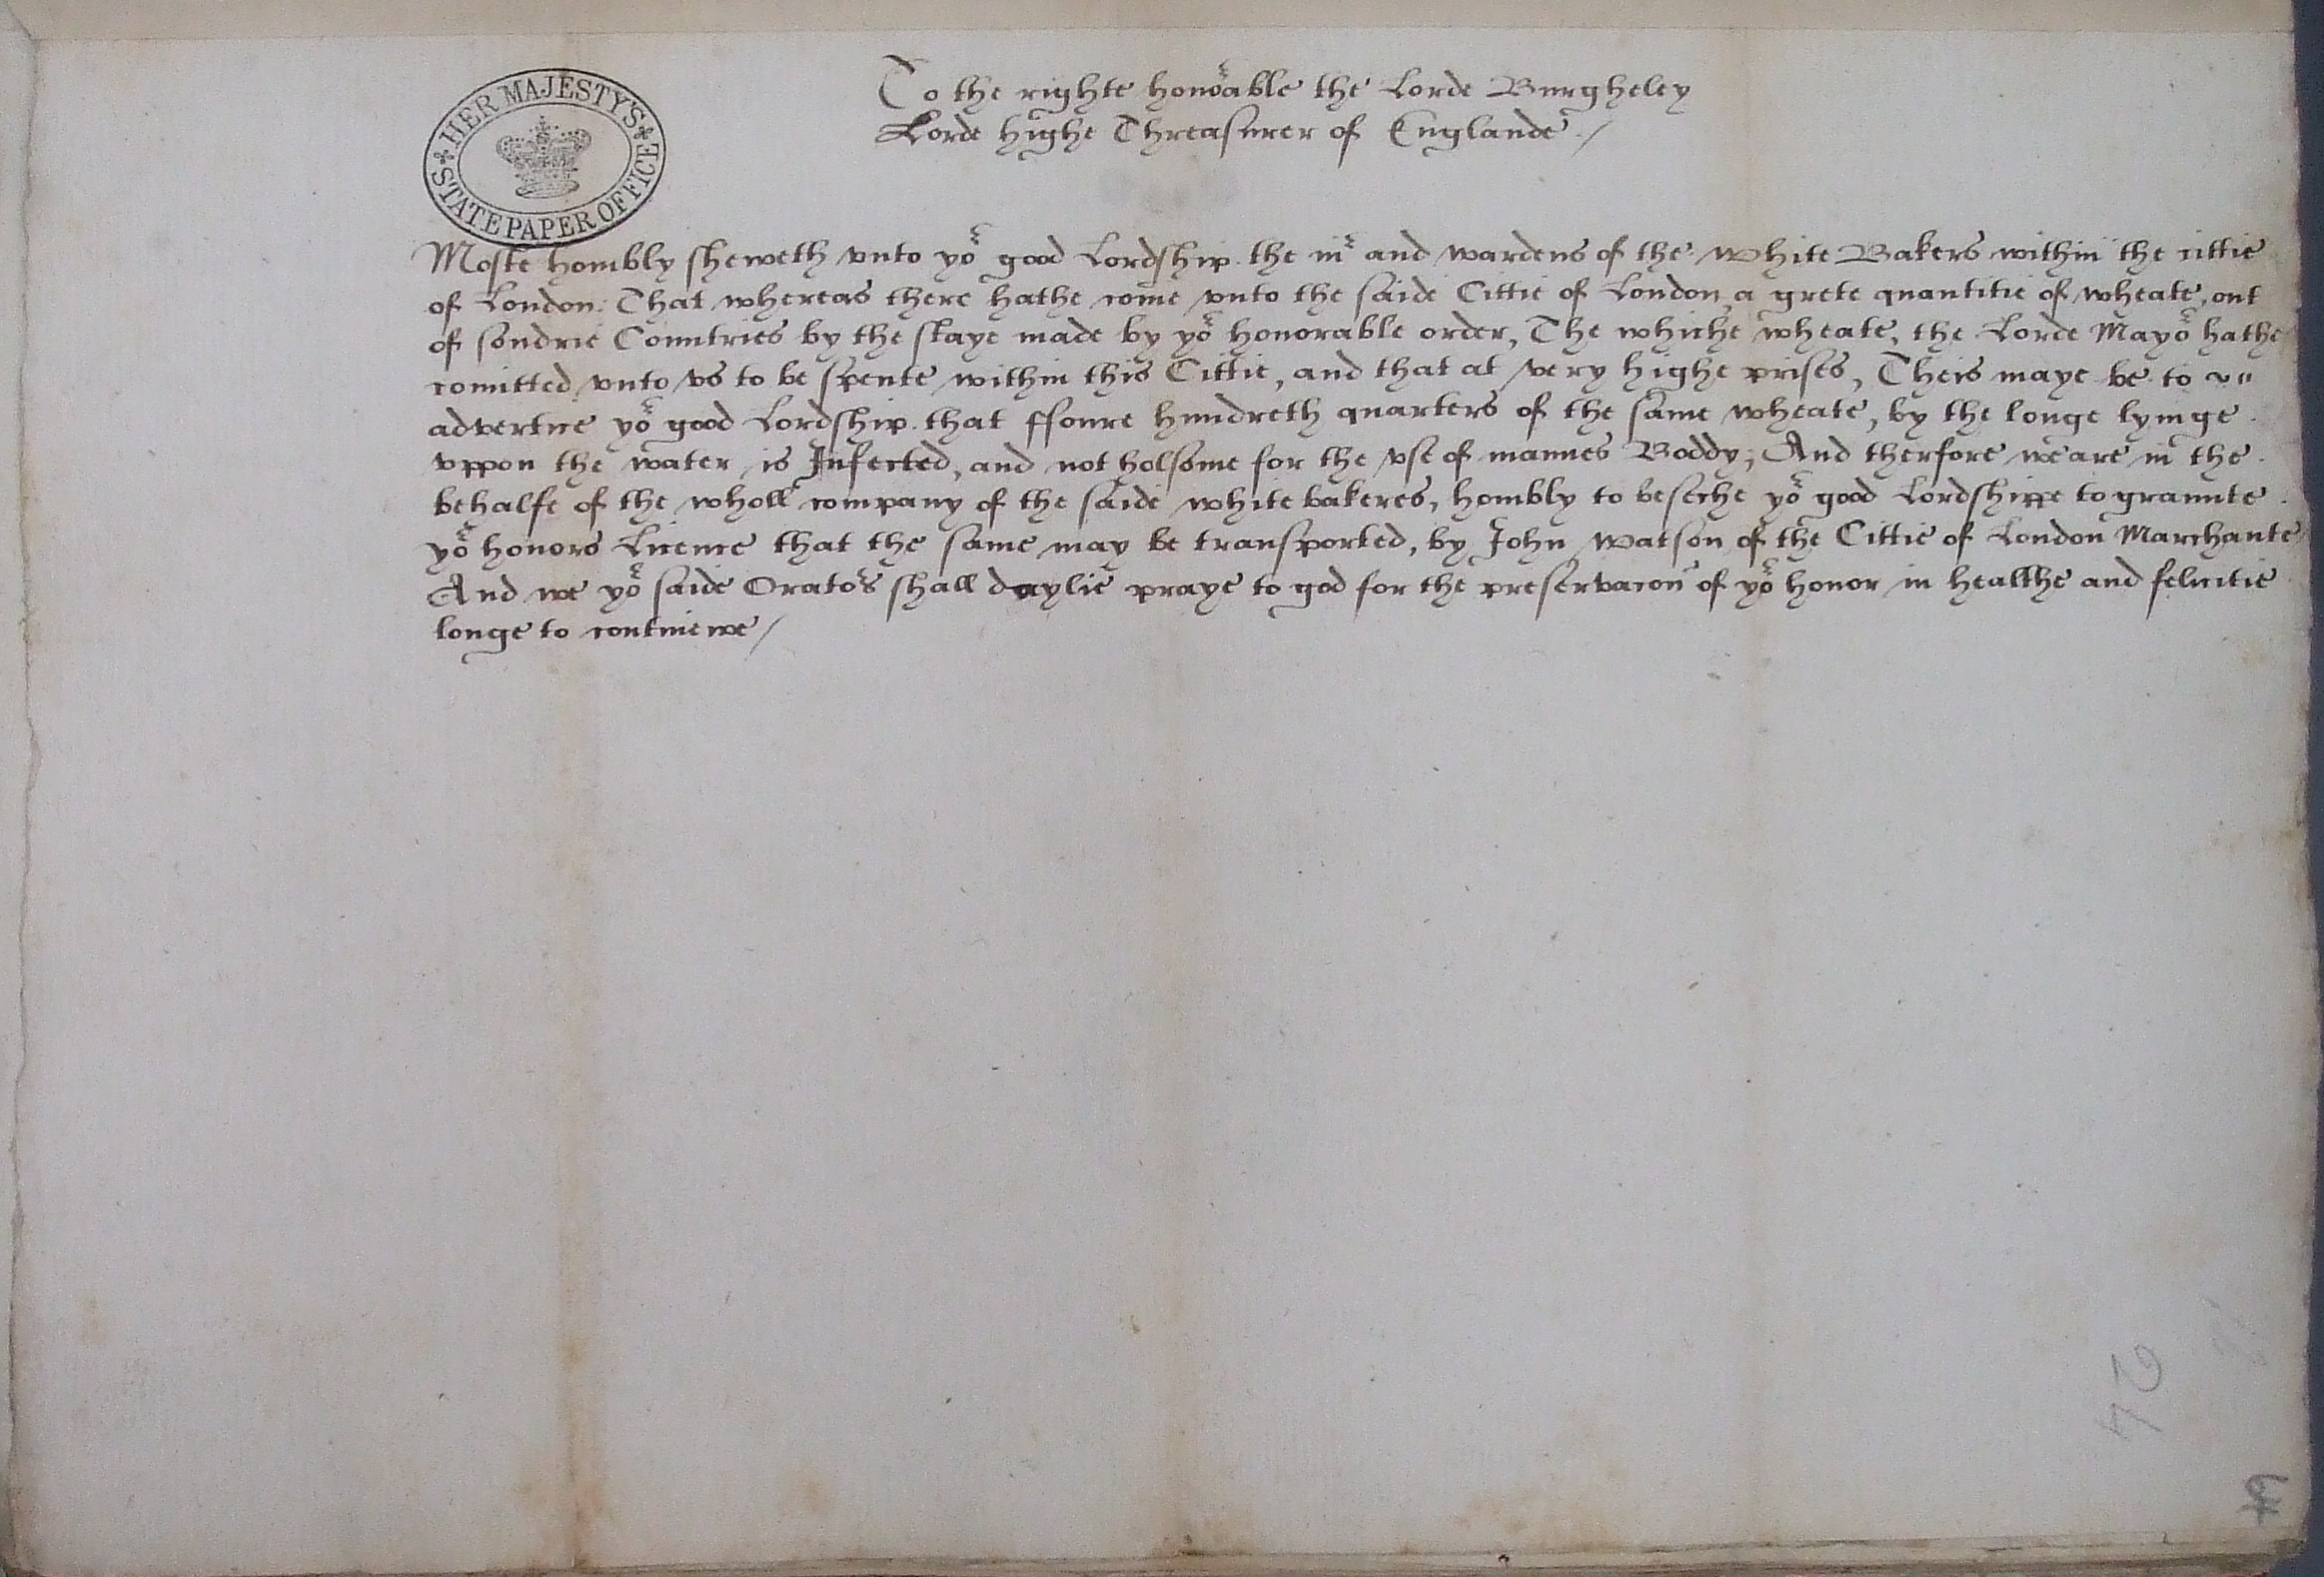 HER MAJESTY'S STATE PAPER OFFICE
To the righte honorable the Lorde Burgheley
Lorde highe Threasurer of Englande ./
Moste hombly sheweth vnto yor good Lordship. the mr and wardens of the white Bakers within the cittie
of London. That whereas there hathe come vnto the saide Cittie of London a grete quantitie of wheate, out
of sondrie Countries by the staye made by yor honorable order, The whiche wheate, the Lorde Mayor hathe
comitted vnto vs to be spente within this Cittie, and that at very highe prises, Theis maye be to
advertice yor good Lordship. that ffoure hundreth quarters of the same wheate, by the longe lyinge
vppon the water, is Infected, and not holsome for the vse of mannes Boddy; And therfore we are in the
behalfe of the wholl company of the saide white bakeres, hombly to beseche yor good Lordshippe to graunte
yor honors Licence that the same may be transported, by John Watson of the Cittie of London Marchante
And we yor saide Orators shall daylie praye to god for the preservacon of yor honor in healthe and felicitie
longe to continewe /
24